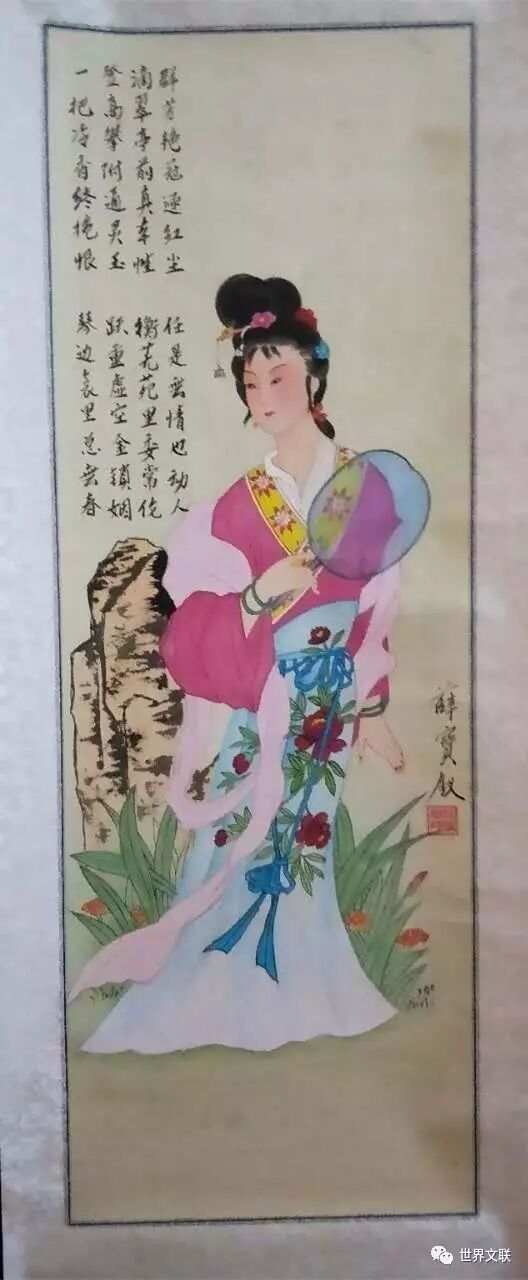 群芳艳冠逐红尘
任是無情也动人
滴翠亭前真本性
蘅芜苑里委常
登高攀附通灵玉
跌重虚空金锁姻
一把冷香终恨
琴边衾里总無春
薛寶钗
世界文联